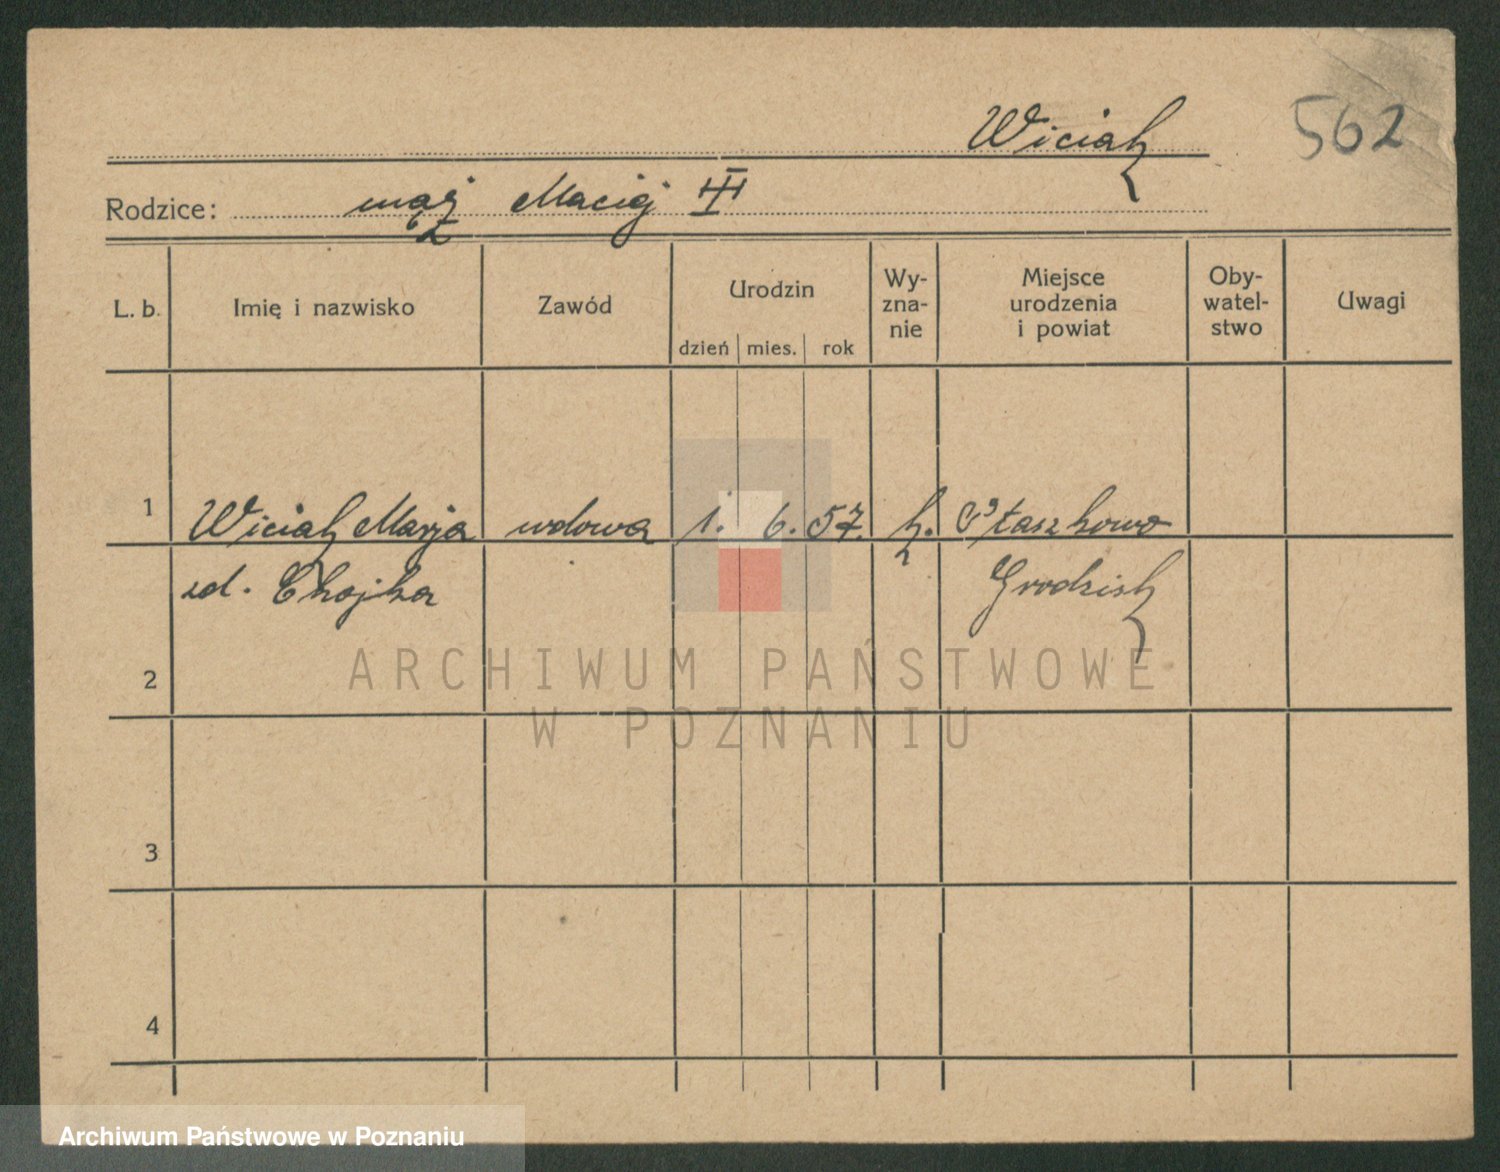 Wiciak 562
Rodzice: mąż Maciej III
L. b. Imię i nazwisko Zawód Urodzin dzień mies. rok Wy-zna-nie Miejsce urodzenia i powiat Oby-watel-stwo Uwagi
1 Wiciak Marja wdowa 1. 6. 57. k. Ptaszkowo
zd. Chojka Grodzisk
2
ARCHIWUM PAŃSTWOWE
W POZNANIU
3
4
Archiwum Państwowe w Poznaniu